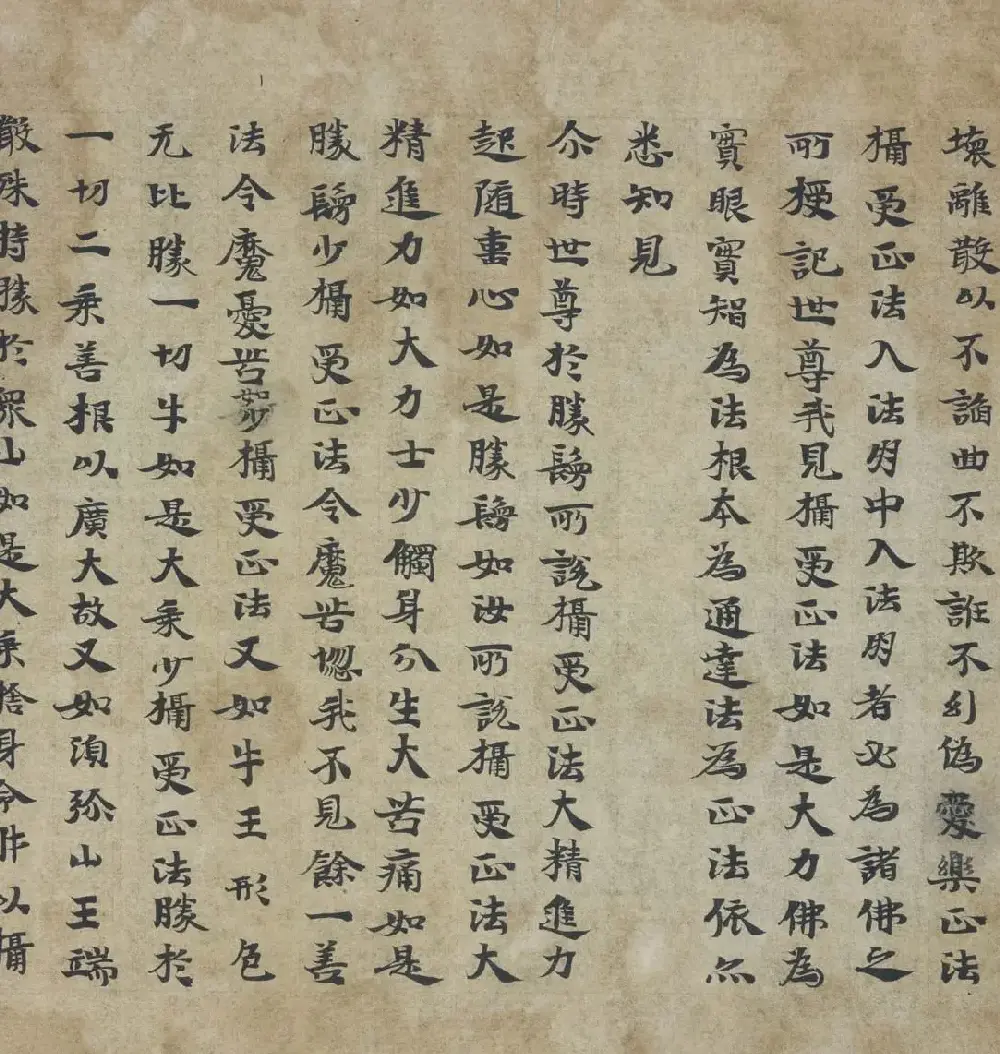 壞離散以不諂曲不欺誑不幻偽愛樂正法
攝受正法入法朋中入法朋者必為諸佛之
所授記世尊我見攝受正法如是大力佛為
實眼實智為法根本為通達法為正法依亦
悉知見
尒時世尊於勝鬘所說攝受正法大精進力
起随喜心如是勝鬘如汝所說攝受正法大
精進力如大力士少觸身分生大苦痛如是
勝鬘少攝受正法令魔苦惱我不見餘一善
法令魔憂苦如少攝受正法又如牛王形色
无比勝一切牛如是大乘少攝受正法勝於
一切二乘善根以廣大故又如湏弥山王端
嚴殊特勝於衆山如是大乘捨身命財以攝